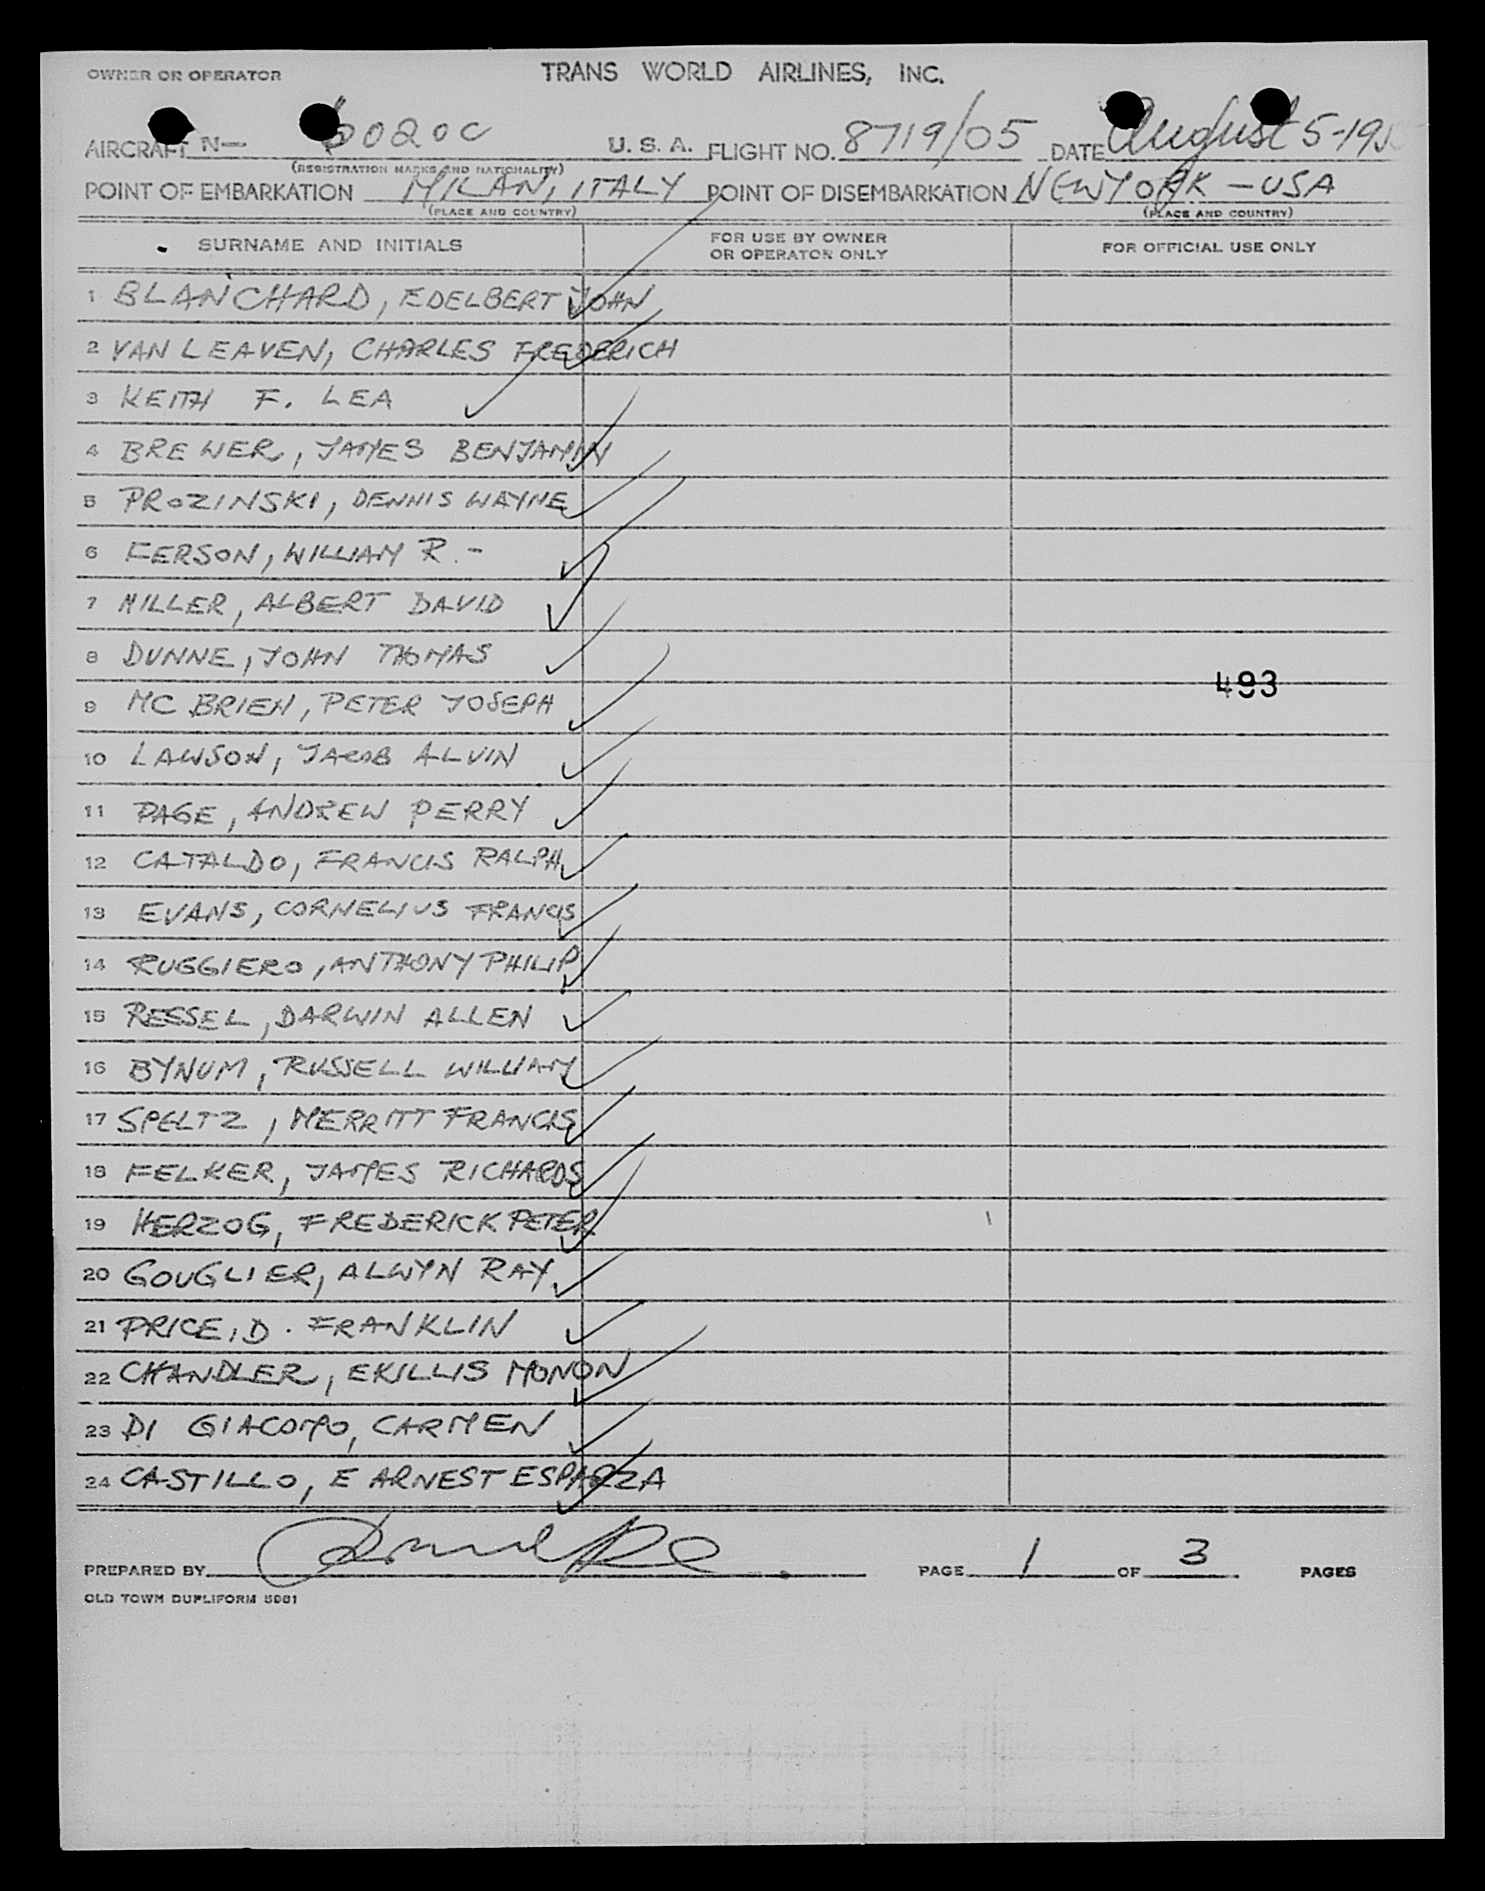 OWNER OR OPERATOR TRANS WORLD AIRLINES, INC.
AIRCRAFT N— 6020C U. S. A. FLIGHT NO. 8719/05 DATE August 5-195
(REGISTRATION MARKS AND NATIONALITY)
POINT OF EMBARKATION MILAN, ITALY POINT OF DISEMBARKATION NEW YORK - USA
(PLACE AND COUNTRY) (PLACE AND COUNTRY)
SURNAME AND INITIALS FOR USE BY OWNER OR OPERATOR ONLY FOR OFFICIAL USE ONLY
1 BLANCHARD, EDELBERT JOHN
2 VAN LEAVEN, CHARLES FREDERICH
3 KEITH F. LEA
4 BREWER, JAMES BENJAMIN
5 PROZINSKI, DENNIS WAYNE
6 FERSON, WILLIAM R. -
7 MILLER, ALBERT DAVID
8 DUNNE, JOHN THOMAS
493
9 MC BRIEN, PETER JOSEPH
10 LAWSON, JACOB ALVIN
11 PAGE, ANDREW PERRY
12 CATALDO, FRANCIS RALPH
13 EVANS, CORNELIUS FRANCIS
14 RUGGIERO, ANTHONY PHILIP
15 RESSEL, DARWIN ALLEN
16 BYNUM, RUSSELL WILLIAM
17 SPELTZ, MERRITT FRANCIS
18 FELKER, JAMES RICHARDS
19 HERZOG, FREDERICK PETER
20 GOUGLIER, ALWYN RAY
21 PRICE, D. FRANKLIN
22 CHANDLER, EKILLIS MONON
23 DI GIACOMO, CARMEN
24 CASTILLO, EARNEST ESPARZA
PREPARED BY PAGE 1 OF 3 PAGES
OLD TOWN DUPLIFORM 5981